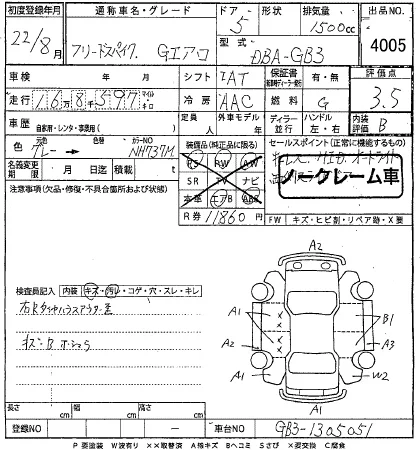 初度登録年月 通称車名・グレード ドア 形状 排気量 出品NO.
22/8月 フリードスパイク Gエアロ 5 1500cc 4005
型式 DBA-GB3
車検 年 月 シフト IAT 保証書 有・無 評価点
走行 16万8千597 マイル キロ 冷房 AAC 燃料 G 3.5
車歴 自家用・レンタ・事業用( ) 定員 人 外車モデル 年 ディーラー 並行 ハンドル 左・右 内装評価 B
色 元色 グレー → カラーNO NH737M 装備品(純正品に限る) セールスポイント(正常に機能するもの)
名義変更期限 月 日迄 積載 t
PS PW AW
SR TV ナビ
本革 エアB
R券 11860 円
ノークレーム車
注意事項(欠品・修復・不具合箇所および状態)
FW キズ・ヒビ割・リペア跡・X要
検査員記入 内装 キズ・汚レ・コゲ・穴・スレ・キレ
A2
A1
B1
A2
A3
A1
W2
A1
長さ cm 幅 cm 高さ cm
登録NO - 車台NO GB3-1305051
P要塗装 W波有り ××取替済 A線キズ Bヘコミ Sさび ×要交換 C腐食